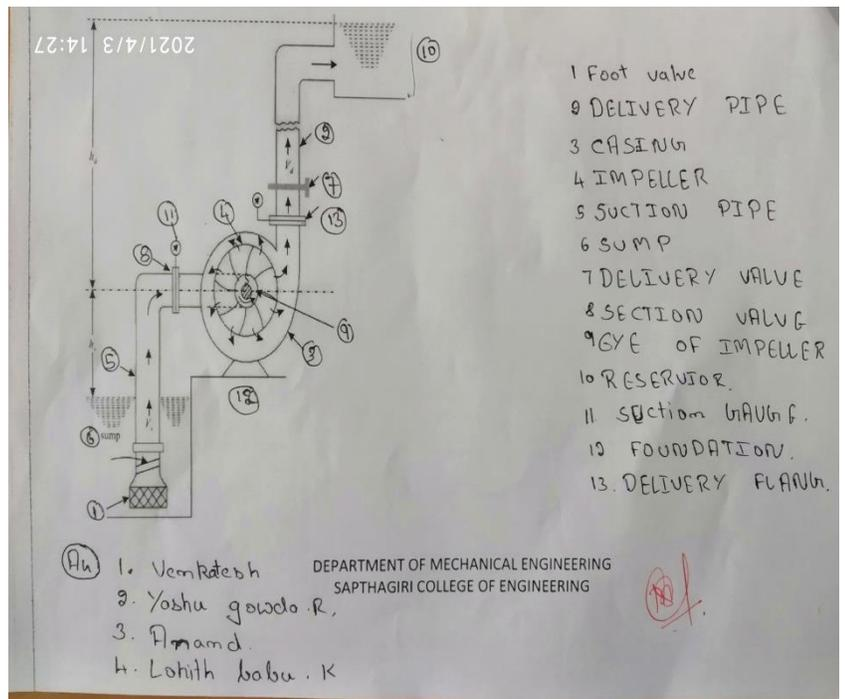 2021/4/3 14:27
10
1 Foot valve
2 DELIVERY PIPE
3 CASING
4 IMPELLER
5 SUCTION PIPE
6 SUMP
7 DELIVERY VALVE
8 SECTION VALVG
9 GYE OF IMPELLER
10 RESERVIOR.
11 SUction GAUGG.
12 FOUNDATION.
13. DELIVERY FLANG.
2
7
13
11
4
8
9
3
5
12
6 sump
1
Au 1. Venkatesh
2. Yashu gowda.R,
3. Anamd.
4. Lohith babu. K
DEPARTMENT OF MECHANICAL ENGINEERING
SAPTHAGIRI COLLEGE OF ENGINEERING